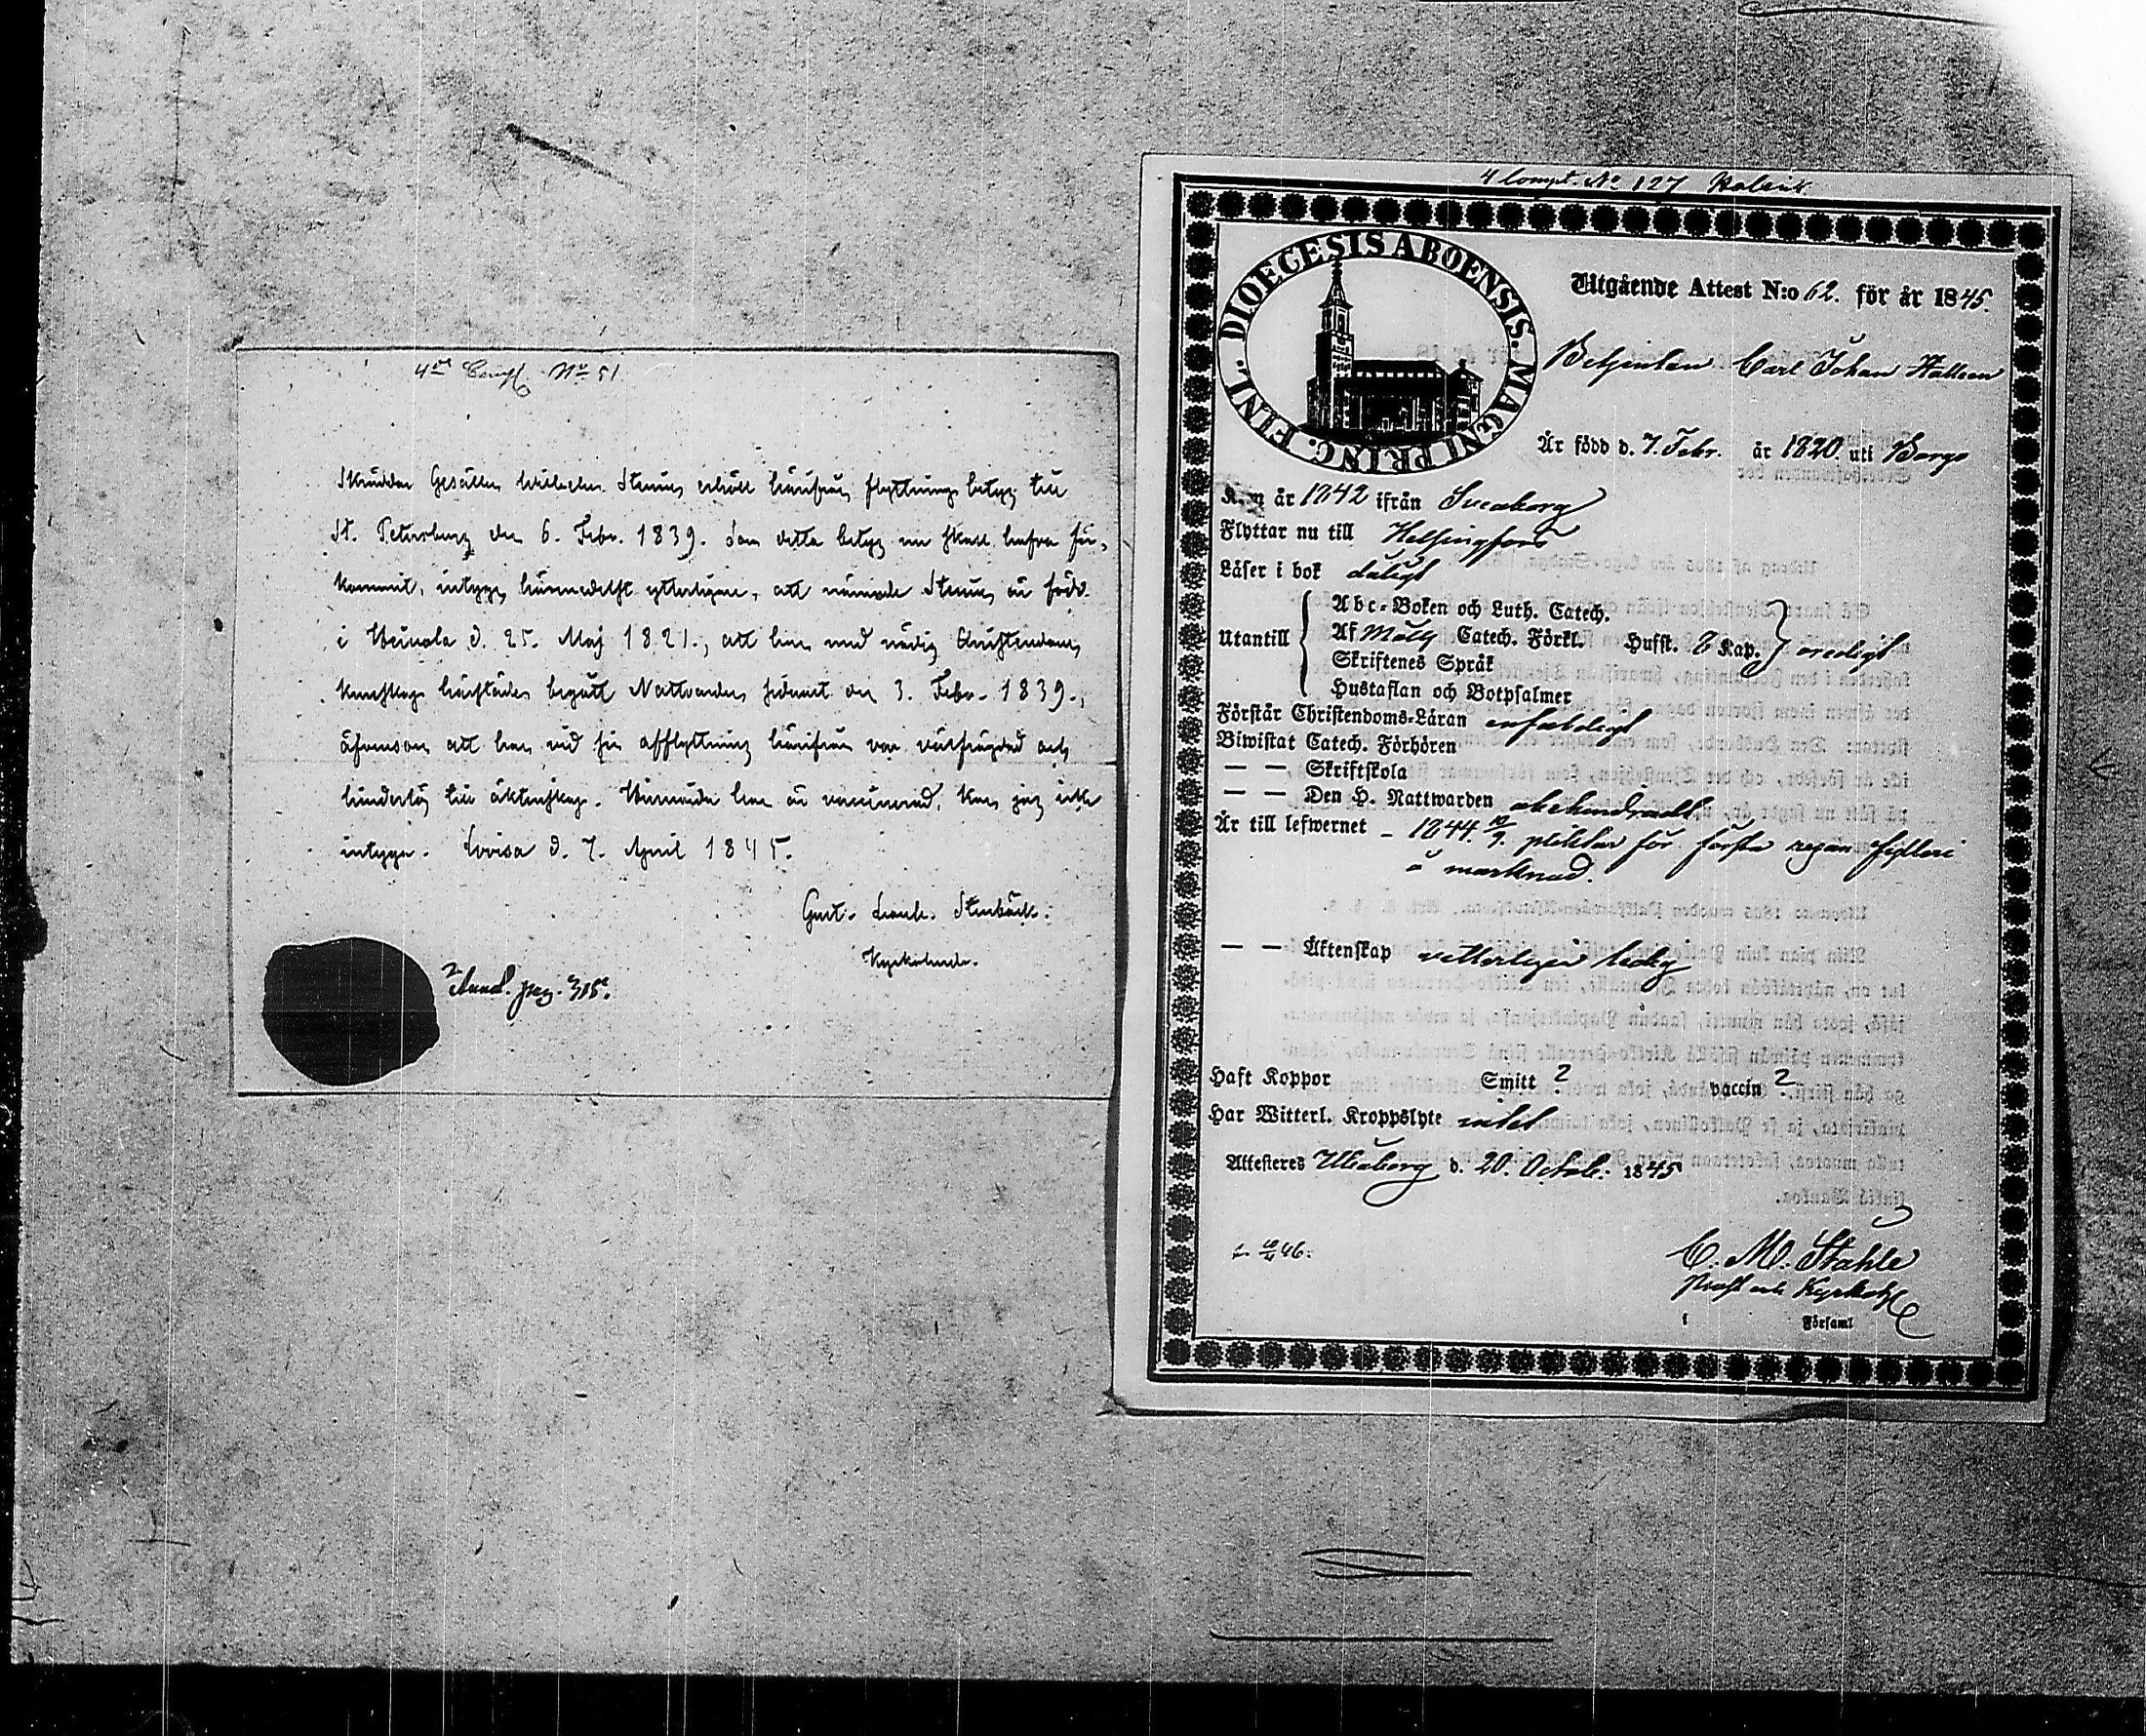 4de Compl. No 51
Skräddar Gesällen Wilhelm Stenius erhöll härifrån flyttnings betyg till
St. Petersburg den 6. Febr. 1839. Som detta betyg nu skall hafva för-
kommit, intygas härmedelst ytterligare, att nämnde Stenius är född
i Heinola d. 25. Maj 1821., att han med nödig Christendoms
kunskap härstädes begått Nattvarden sednast den 3. Febr. 1839.,
äfvensom att han vid sin afflyttning härifrån var välfrägdad och
hinderlös till äktenskap. Huruvida han är vaccinerad, kan jag icke
intyga. Lovisa d. 7. April 1845.
Gust. Stenbäck.
Kyrkoherde.
Annot. pag. 315.
4 Compt. No 127
DIOECESIS ABOENSIS. MAGNI PRINC. FINL.
Utgående Attest N:o 62. för år 1845.
Betjenten Carl Johan Hallein
Är född d. 7. Febr. år 1820 uti Borgo
Kom år 1842 ifrån Sveaborg
Flyttar nu till Helsingfors
Läser i bok dåligt
Utantill
Abc-Boken och Luth. Catech.
Af Catech. Förkl. Hufst. 8 Kap. oredigt
Skriftenes Språk
Hustaflan och Botpsalmer
Förstår Christendoms-Läran enfaldeligt
Biwistat Catech. Förhören
— — Skriftskola
— — Den H. Nattwarden obehindradt
Är till lefwernet – 1844 pliktat för första resan fylleri
å marknad.
— — Äktenskap vetterligen ledig
Haft Koppor Smitt ? vaccin ?
Har Witterl. Kroppslyte intet
Attesteres Uleåborg d. 20. Octob. 1845
46.
C. M. Ståhle
Prost och Kyrkoh
i Församl